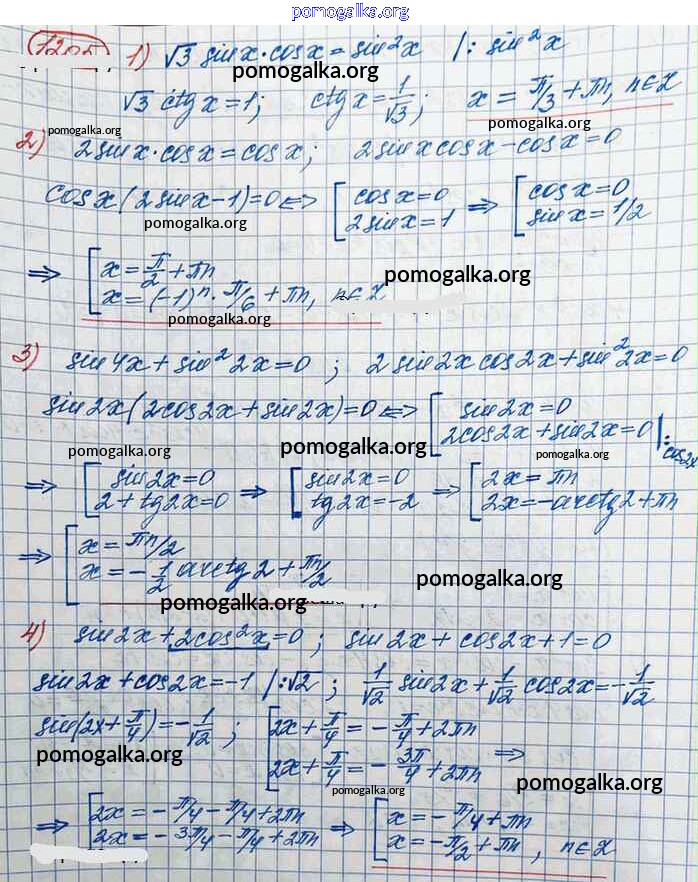 pomogalka.org
1205 1) √3 sinx·cosx = sin²x |: sin²x
pomogalka.org
√3 ctgx = 1; ctgx = 1/√3; x = π/3 + πn, n∈Z
pomogalka.org pomogalka.org
2) 2sinx·cosx = cosx; 2sinxcosx - cosx = 0
cosx(2sinx-1)=0 <=> [cosx=0 2sinx=1 => [cosx=0 sinx=1/2
pomogalka.org
=> [x = π/2 + πn x = (-1)ⁿ· π/6 + πn, n∈Z
pomogalka.org
pomogalka.org
3) sin4x + sin²2x = 0 ; 2 sin2x cos2x + sin²2x = 0
sin2x(2cos2x + sin2x) = 0 <=> [sin2x=0 2cos2x + sin2x = 0 |: cos2x
pomogalka.org pomogalka.org pomogalka.org
=> [sin2x=0 2+tg2x=0 => [sin2x=0 tg2x=-2 => [2x = πn 2x = -arctg2 + πn
=> [x = πn/2 x = -1/2 arctg2 + πn/2
pomogalka.org
pomogalka.org
4) sin2x + 2cos²x = 0 ; sin2x + cos2x + 1 = 0
sin2x + cos2x = -1 |:√2 ; 1/√2 sin2x + 1/√2 cos2x = -1/√2
sin(2x + π/4) = -1/√2 ; [2x + π/4 = -π/4 + 2πn 2x + π/4 = -3π/4 + 2πn =>
pomogalka.org pomogalka.org
pomogalka.org
=> [2x = -π/4 - π/4 + 2πn 2x = -3π/4 - π/4 + 2πn => [x = -π/4 + πn x = -π/2 + πn, n∈Z